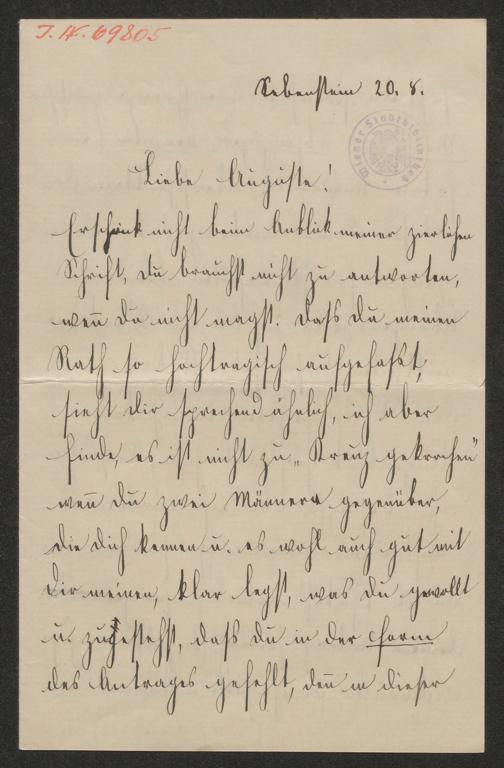 J.N. 69805
Sebenstein 20. 8.
Wiener Stadtbibliothek
Liebe Auguste!
Erschrick nicht beim Anblick meiner zierlichen
Schrift, du brauchst nicht zu antworten,
wen̄ du nicht magst. Daſs du meinen
Rath so hochtragisch aufgefaßt,
sieht dir sprechend ähnlich, ich aber
finde, es ist nicht zu „Kreuz gekrochen"
wen̄ du zwei Männern gegenüber,
die dich kennen u. es wohl auch gut mit
dir meinen, klar legst, was du gewollt
u. zugestehst, daſs du in der Form
des Antrages gefehlt, den̄ in dieser